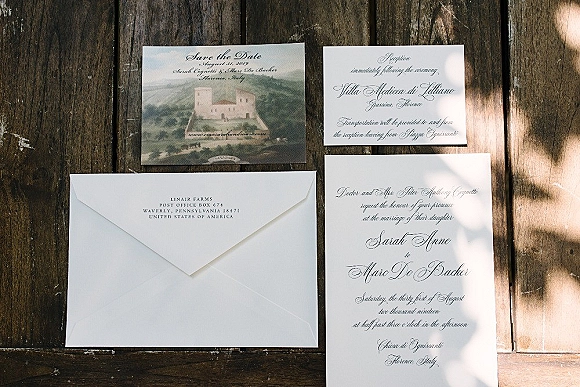 Save the Date
August 31, 2019
Sarah Cognetti & Marc De Backer
Florence, Italy
Reception
immediately following the ceremony
Villa Medicea di Lilliano
Grassina, Florence
Transportation will be provided to and from
the reception leaving from Piazza Ognissanti
LINAIR FARMS
POST OFFICE BOX 674
WAVERLY, PENNSYLVANIA 18471
UNITED STATES OF AMERICA
Doctor and Mrs. Peter Anthony Cognetti
request the honour of your presence
at the marriage of their daughter
Sarah Anne
to
Marc De Backer
Saturday, the thirty first of August
two thousand nineteen
at half past three o'clock in the afternoon
Chiesa di Ognissanti
Florence, Italy